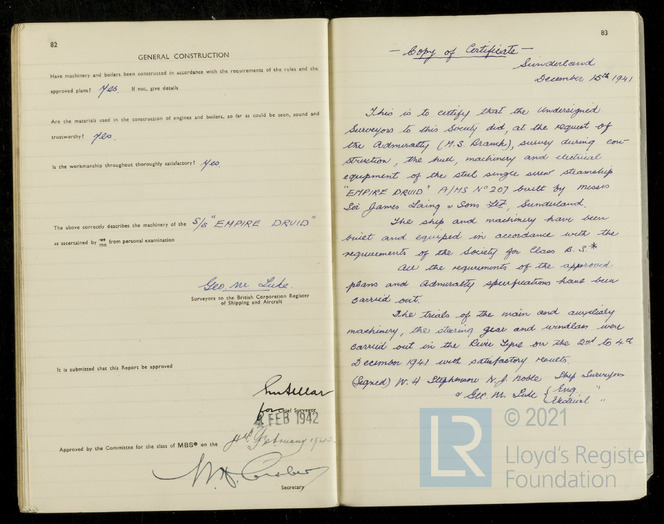 82
GENERAL CONSTRUCTION
Have machinery and boilers been constructed in accordance with the requirements of the rules and the
approved plans? Yes. If not, give details
Are the materials used in the construction of engines and boilers, so far as could be seen, sound and
trustworthy? Yes.
Is the workmanship throughout thoroughly satisfactory? Yes
The above correctly describes the machinery of the S/S "EMPIRE DRUID"
as ascertained by from personal examination
Geo. M. Luke
Surveyors to the British Corporation Register
of Shipping and Aircraft
It is submitted that this Report be approved
for Chief Surveyor
4 FEB 1942
Approved by the Committee for the class of MBS* on the 4th February 1942
Secretary
83
- Copy of Certificate -
Sunderland
December 15th 1941
This is to certify that the undersigned
Surveyors to this Society did, at the request of
the Admiralty (M.S. Branch), survey during con-
struction, the hull, machinery and electrical
equipment of the steel single screw steamship
"EMPIRE DRUID" A/MS No 207 built by Messrs
Sir James Laing & Sons Ltd, Sunderland.
The ship and machinery have been
built and equiped in accordance with the
requirements of the Society for Class B.S.*
All the requirements of the approved
plans and Admiralty specifications have been
carried out.
The trials of the main and auxiliary
machinery, the steering gear and windlass were
carried out in the River Tyne on the 2nd to 4th
December 1941 with satisfactory results.
(Signed) W. H Stephenson N. J. Noble Ship Surveyors
& Geo. M. Luke { Eng. "
Electrical "
LR
© 2021
Lloyd's Register
Foundation